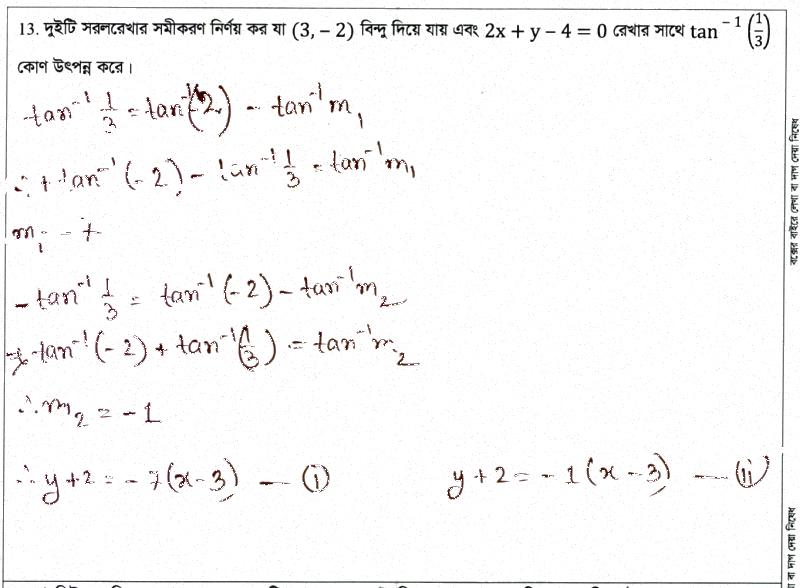 13. দুইটি সরলরেখার সমীকরণ নির্ণয় কর যা (3, – 2) বিন্দু দিয়ে যায় এবং 2x + y – 4 = 0 রেখার সাথে tan⁻¹(1/3)
কোণ উৎপন্ন করে।
tan⁻¹ 1/3 = tan⁻¹(-2) - tan⁻¹ m₁
∴ + tan⁻¹ (-2) - tan⁻¹ 1/3 = tan⁻¹ m₁
m₁ = 7
- tan⁻¹ 1/3 = tan⁻¹ (-2) - tan⁻¹ m₂
tan⁻¹ (-2) + tan⁻¹ (1/3) = tan⁻¹ m₂
∴ m₂ = -1
∴ y + 2 = - 7(x - 3) — (i) y + 2 = - 1 (x - 3) — (ii)
বক্সের বাইরে লেখা বা দাগ দেয়া নিষেধ
বা দাগ দেয়া নিষেধ